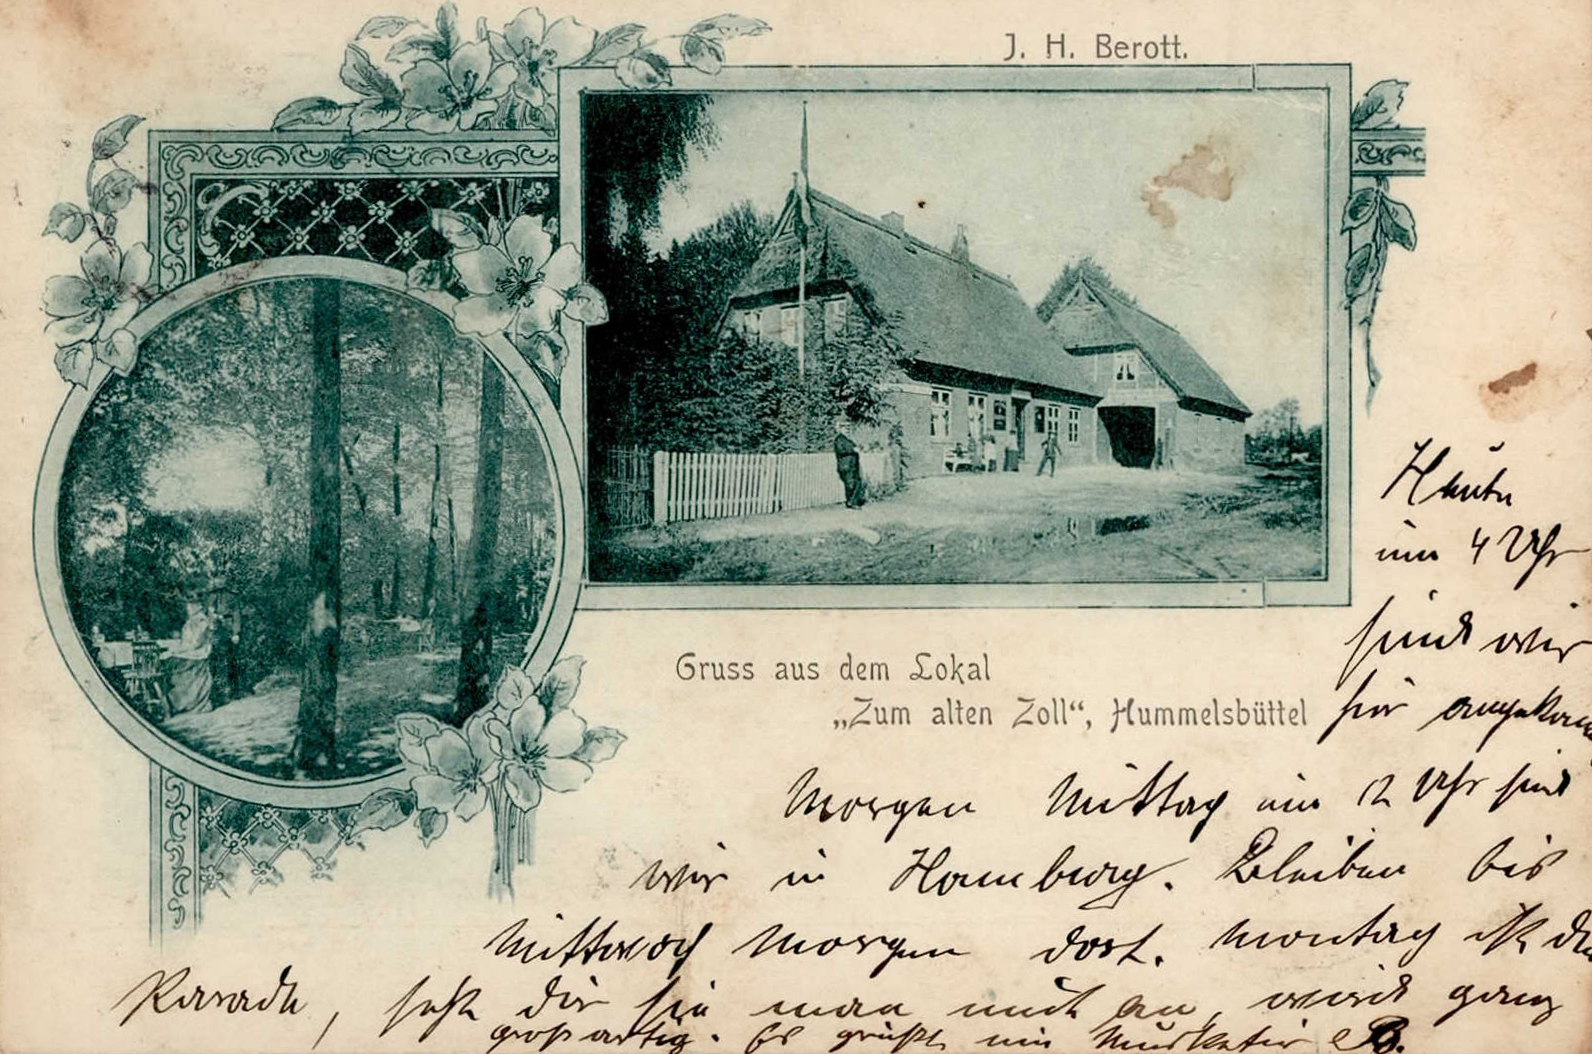 J. H. Berott.
Gruss aus dem Lokal
„Zum alten Zoll“, Hummelsbüttel
Heute
um 4 Uhr
sind wir
hier angekom
Morgen Mittag um 12 Uhr sind
wir in Hamburg. Bleiben bis
Mittwoch Morgen dort. Montag ist die
Parade, seht Dir sie man mit an, wird ganz
großartig. Es grüßt ein Musketier B.